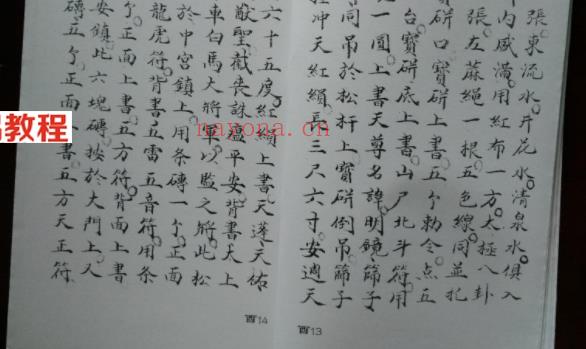 張東流水井花水清泉水俱入
内咸满用紅布一方太極八卦
張左蔴繩一根五色線同並扎
寶缾口寶缾上書五个勅令点五
台寶缾底上書山尸北斗符用
同吊於松杆上寶缾倒吊篩子
一圓上書天尊名諱明鏡篩子
冲天紅縜長三尺六寸安週天
13
六十五度紅縜上書天蓬天佑
猷聖戬丧誅瘟平安背書天上
車白馬大將軍以監之觧此松
於中宮鎮上用条磚一个正面
龍虎符背書五雷五音符用条
个正面上書五方符背面上書
安鎮此六塊磚按於大門上入
磚五个正面書五方天正符
14
易教程
nayona.cn